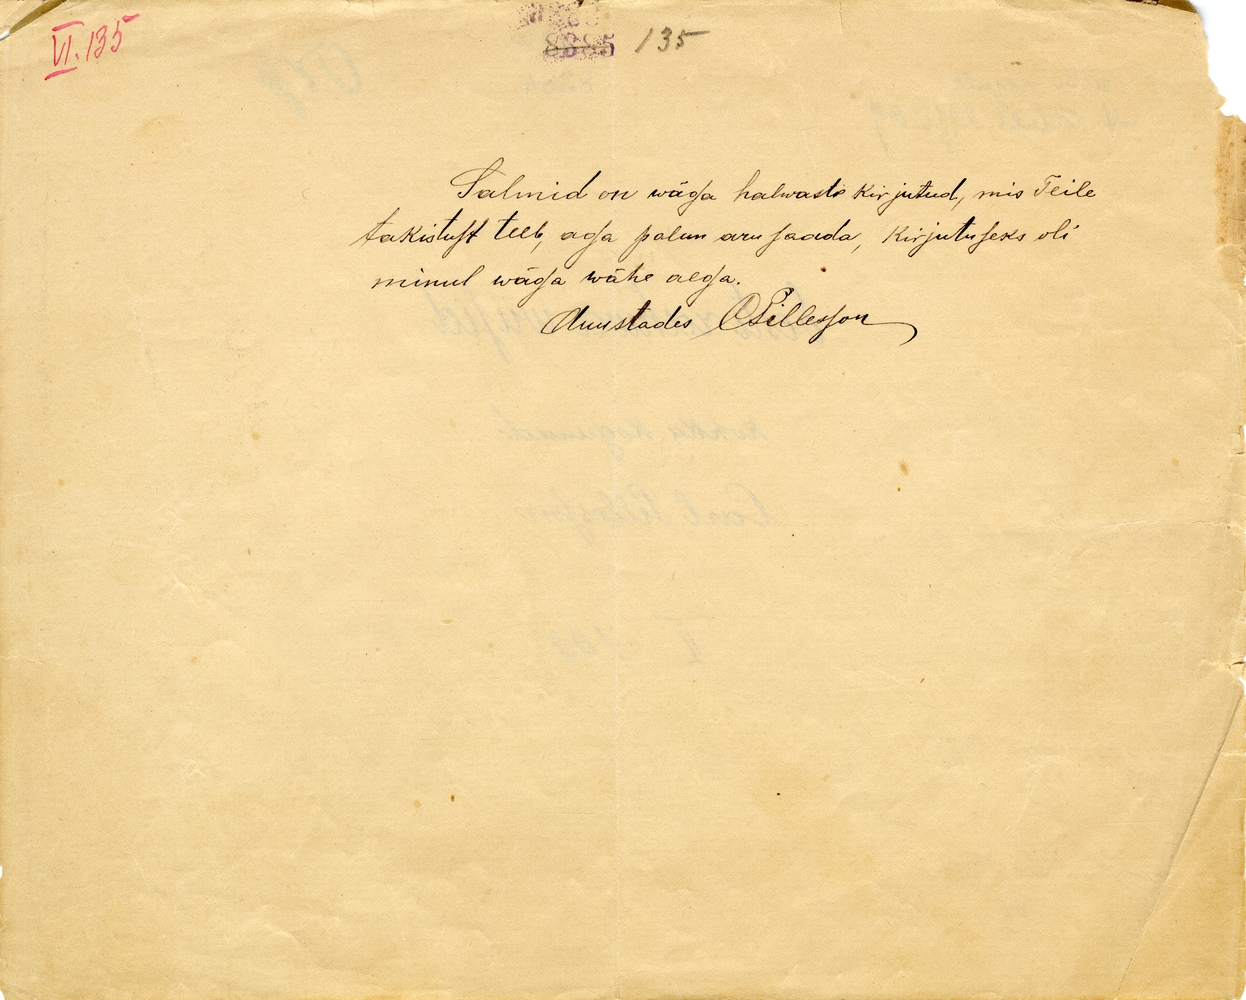 VI. 135
135
Salmid on wäga halwaste kirjutud, mis Teile
takistust teeb, aga palun aru saada, kirjutuseks oli
minul wäga wähe aega.
Auustades CPillesson